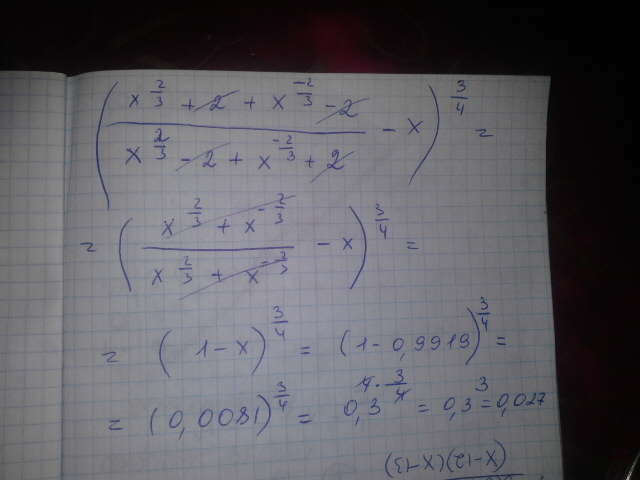 (x^(2/3) + 2 + x^(-2/3) - 2 / x^(2/3) - 2 + x^(-2/3) + 2 - x)^(3/4) =
= (x^(2/3) + x^(-2/3) / x^(2/3) + x^(-2/3) - x)^(3/4) =
= (1-x)^(3/4) = (1-0,9919)^(3/4) =
= (0,0081)^(3/4) = 0,3^(4·3/4) = 0,3^3 = 0,027
(x-12)(x-13)